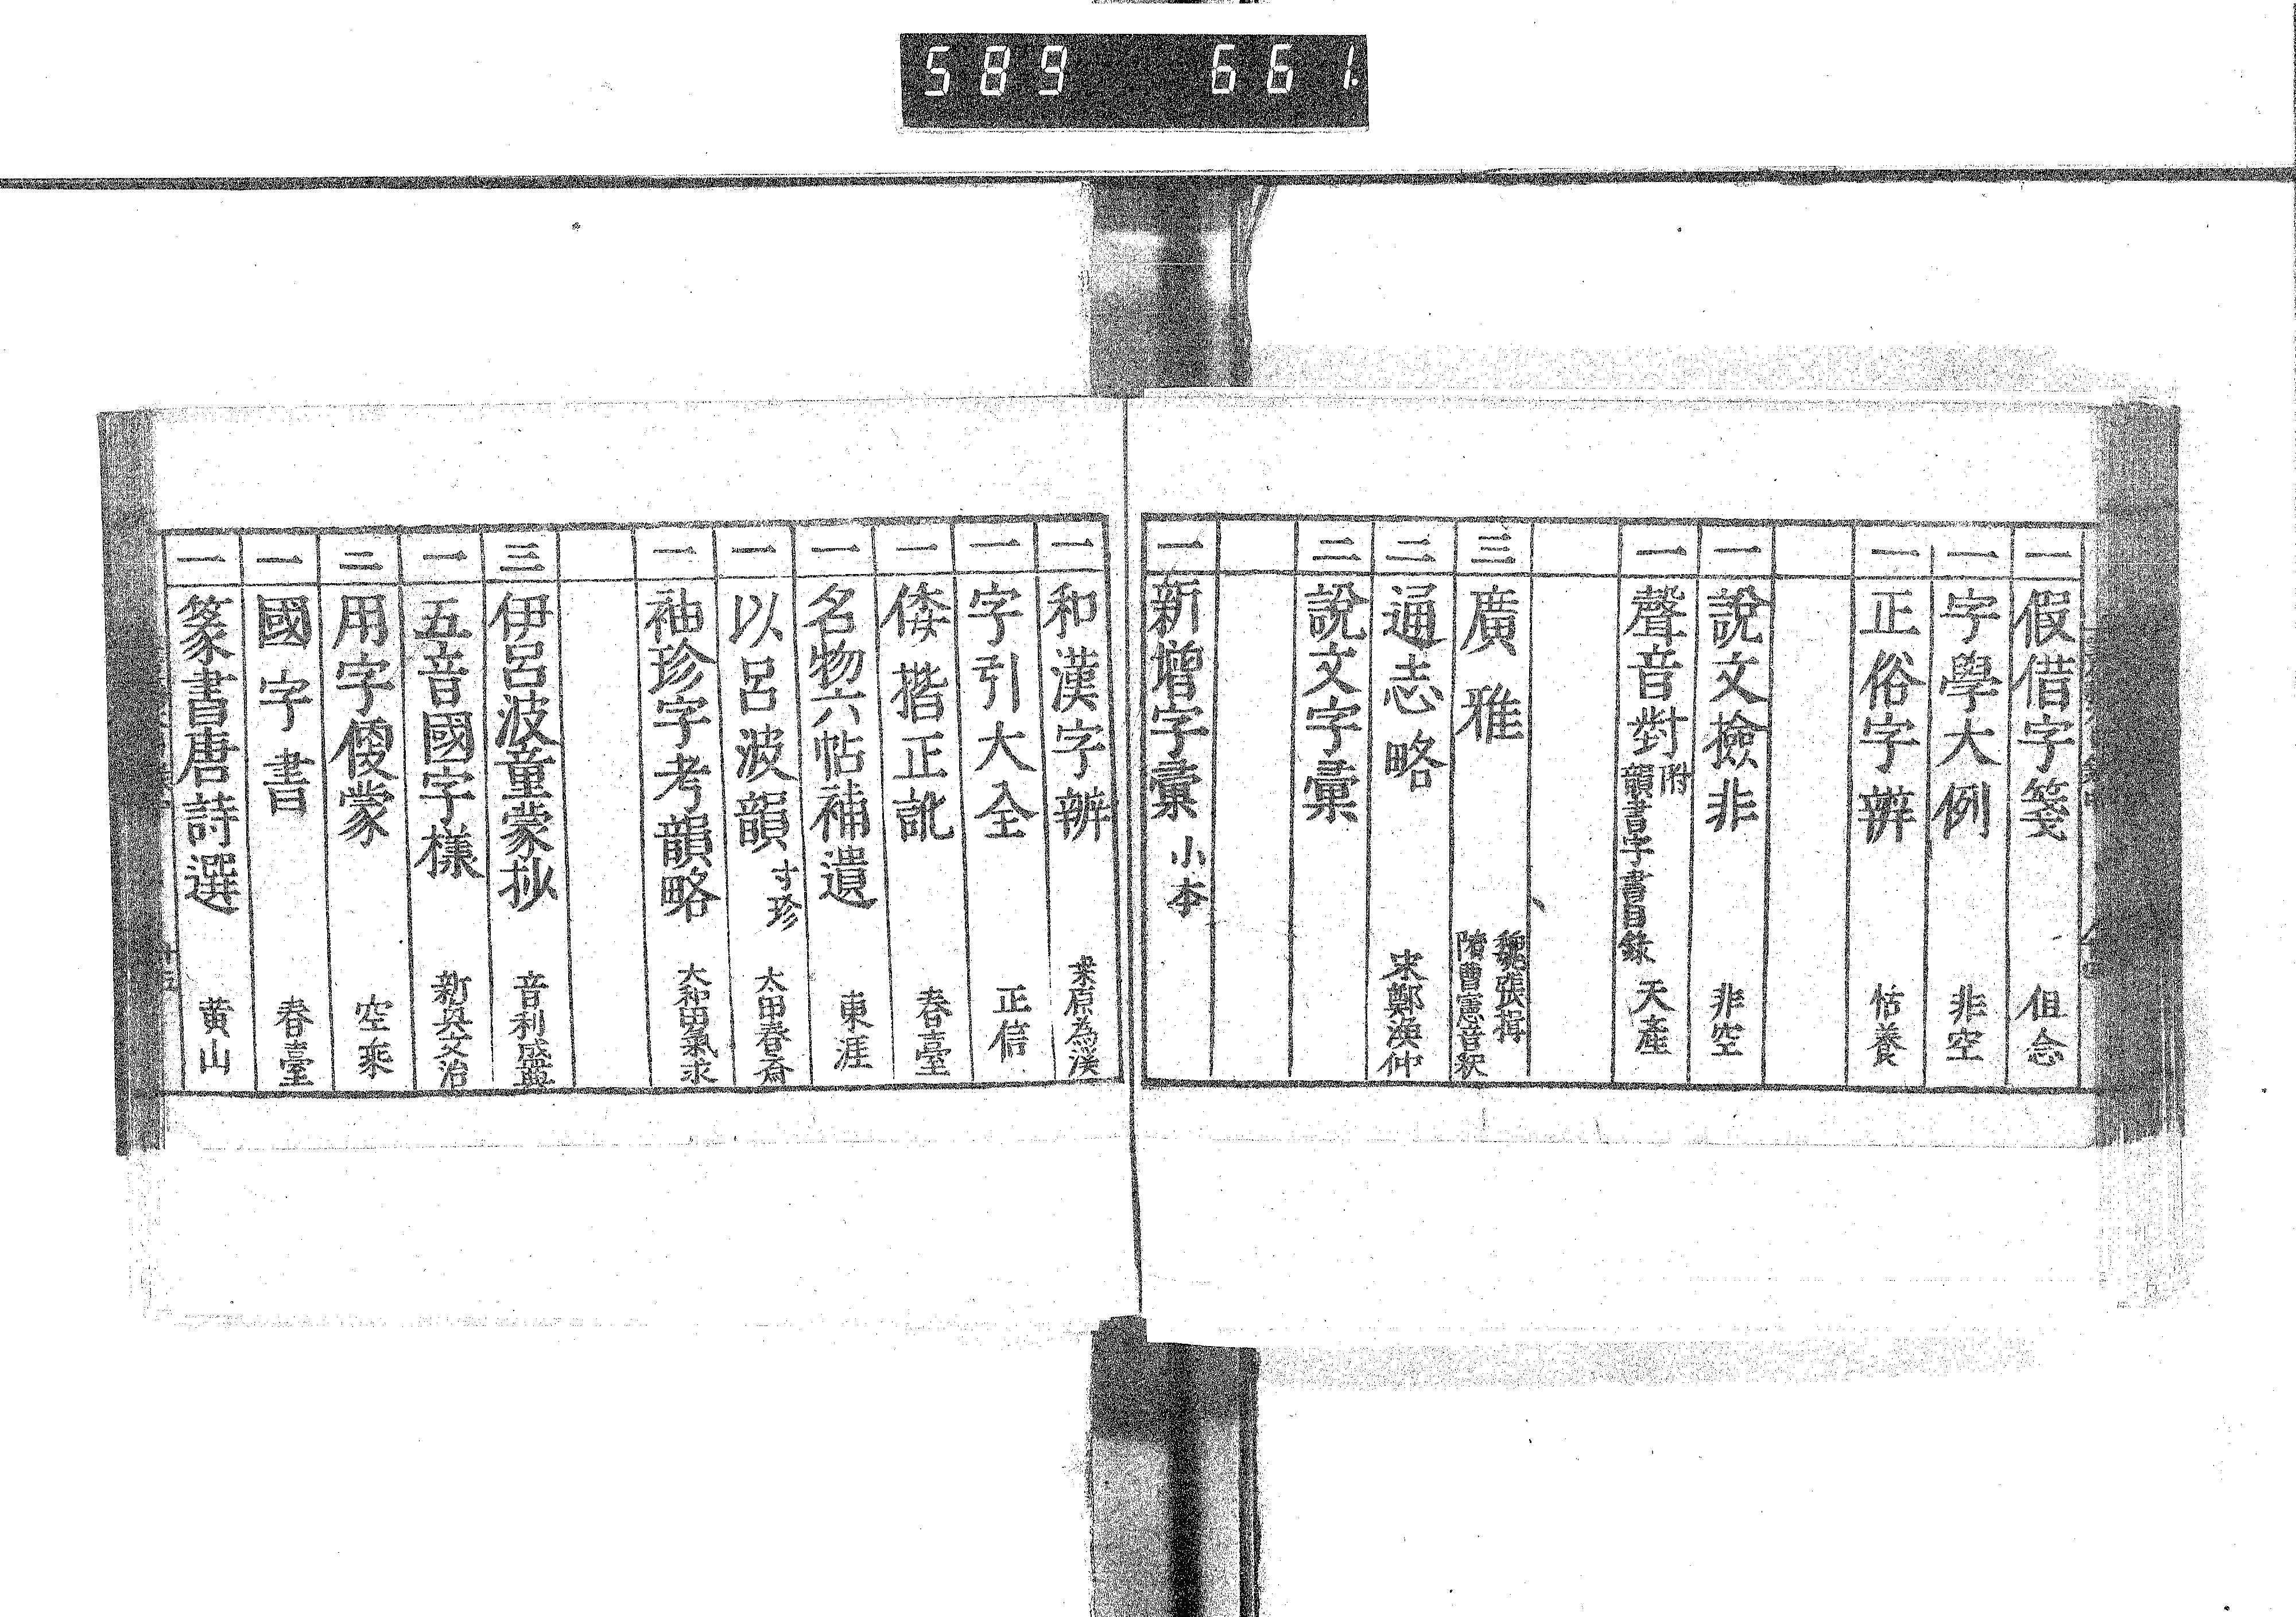 589 661.
一 假借字箋 但念
一 字學大例 非空
一 正俗字辨 恬養
一 說文撿非 非空
一 聲音對 附韻書字書目錄 天產
三 廣雅 魏張揖 隋曹憲音釈
二 通志略 宋鄭漁仲
二 說文字彙
一 新增字彙 小本
一 和漢字辨 原為溪
一 字引大全 正信
一 倭楷正訛 春臺
一 名物六帖補遺 東涯
一 以呂波韻 寸珍 太田春斎
一 袖珍字考韻略 大和田氣求
三 伊呂波童蒙抄 音利盛
一 五音國字樣 新與文治
二 用字便蒙 空乘
一 國字書 春臺
一 篆書唐詩選 黄山